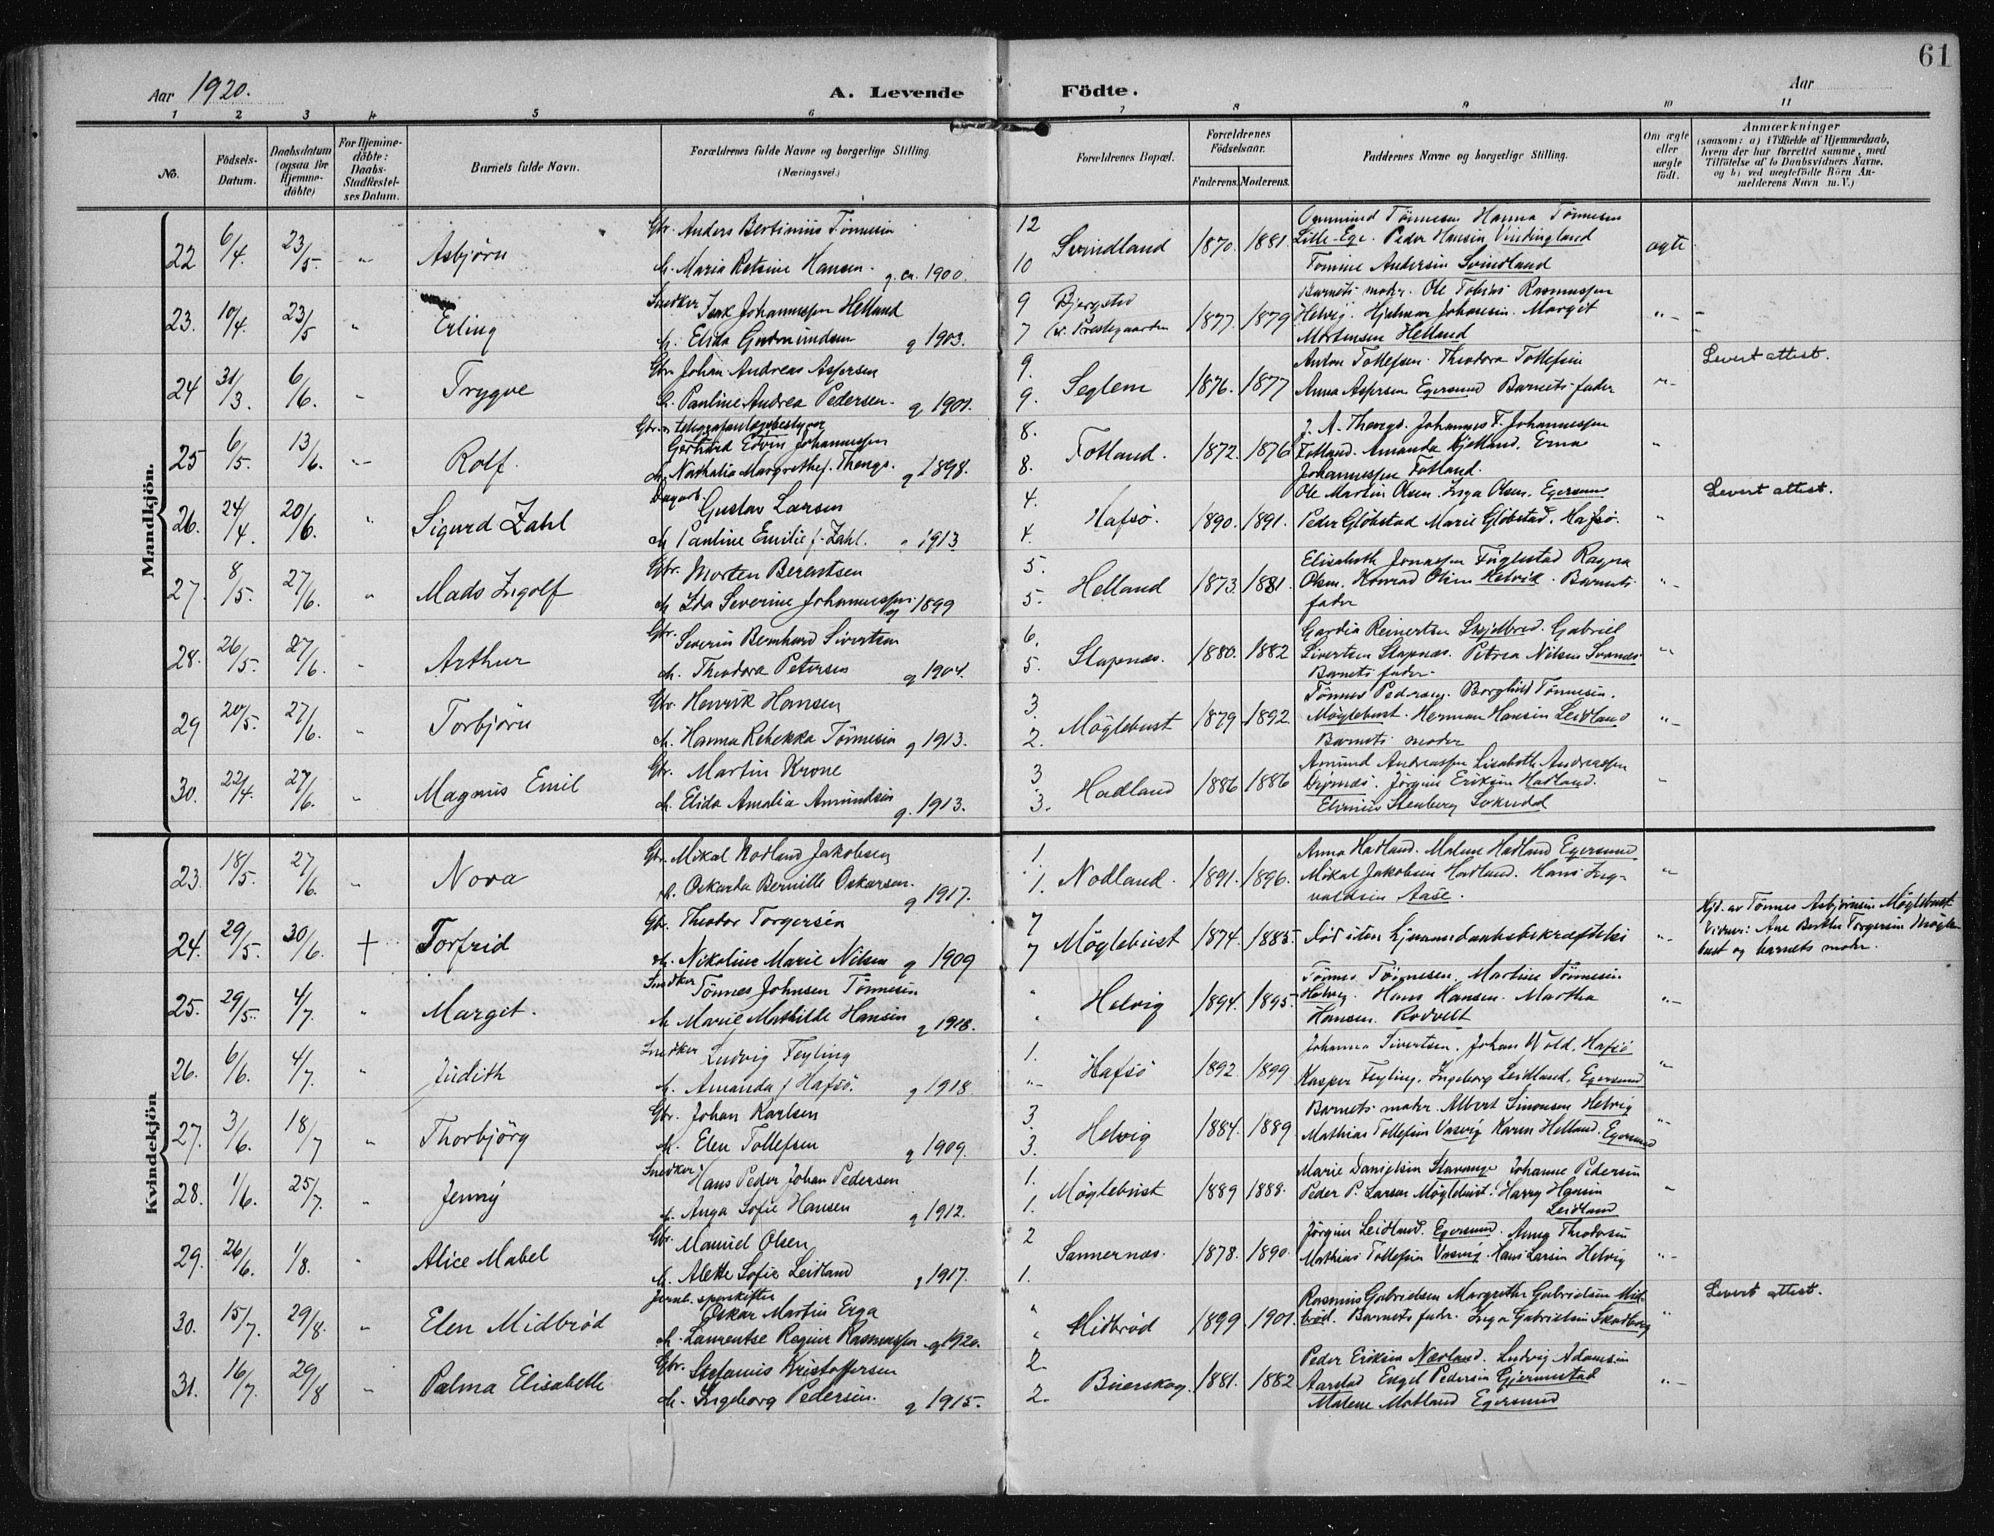 61
Aar 1920.
A. Levende Födte.
Aar
1 2 3 4 5 6 7 8 9 10 11
No.
Födsels-Datum.
Daabsdatum (ogsaa for Hjemmedöbte)
For Hjemmedöbte: Daabs-Stadfestelses Datum.
Barnets fulde Navn.
Forældrenes fulde Navne og borgerlige Stilling. (Næringsvei.)
Forældrenes Bopæl.
Forældrenes Födselsaar.
Faderens. Moderens.
Faddernes Navne og borgerlige Stilling.
Om ægte eller uægte födt.
Anmærkninger
(saasom: a) i Tilfælde af Hjemmedaab,
hvem der har forrettet samme, med
Tilföielse af to Daabsvidners Navne.
og b) ved uægtefödte Börn An-
melderens Navn m. V.)
Mandkjön.
22 6/4. 23/5. " Asbjørn
Gbr. Anders Bertinius Tönnesen
h. Maria Retsine Hansen. g ca. 1900.
12 10 Svindland 1870. 1881.
Lille-Ege. Peder Hansen
Tomine Andersen Svindland
ægte
23. 10/4. 23/5 " Erling
Snedker Isak Johannessen Helland
h. Elida Gudmundsen g 1903.
9 7 1877. 1879
Barnets moder. Ole Tobias Rasmussen
Helvig. Hjalmar Johansen. Margit
Mortensen Helland
24 31/3. 6/6. " Trygve
Gbr. Johan Andreas Aspersen
h. Pauline Andrea Pedersen. g 1901.
9. 9. Seglem 1876. 1877
Anton Tollefsen. Theodora Tollefsen
Anna Aspersen Egersund Barnets fader
Levert attest.
25 6/5. 13/6. " Rolf.
Gerhard Edvin Johannessen
h. Nathalia Margrethe f. Thengs. g 1898.
8. 8. Fotland. 1872. 1876
J. A. Thengs. Johannes F. Johannessen
Fotland. Amanda Kjelland. Erna
Johannessen Fotland.
26. 24/4. 20/6. " Sigurd Zahl
Dagarb. Gustav Larsen
h. Pauline Emilie f. Zahl. " 1913
4. 4. Hafsø. 1890. 1891.
Ole Martin Olsen. Inga Olsen. Egersund
Peder Glöbstad Marie Glöbstad. Hafsø.
Levert attest.
27. 8/5. 27/6. " Mads Ingolf
Gbr. Morten Berentsen
h. Ida Severine Johannessen g 1899
5. 5. Helland 1873. 1881.
Elisabeth Jonassen Fuglestad Ragna
Olsen. Konrad Olsen Helvik. Barnets
fader
28. 26/5. 27/6. " Arthur
Gbr. Severin Bernhard Sivertsen
h. Theodora Petersen g 1904.
6. 5. Stapnæs. 1880. 1882
Gardia Reinertsen Skjelbred. Gabriel
Sivertsen Stapnæs. Petrea Nilsen Svanes
Barnets fader.
29 20/5. 27/6. " Torbjørn
Gbr. Henrik Hansen
h. Hanna Rebekka Tönnesen g 1913.
3. 2. Möglebust 1879. 1892.
Tönnes Pedersen. Borghild Tönnesen.
Möglebust. Herman Hansen Leidland
Barnets moder
30. 22/4. 27/6. " Magnus Emil
Gbr. Martin Krone
h. Elida Amalia Amundsen g. 1913.
3 3. Hadland 1886 1886
Amund Andreassen Lisabeth Andreassen
Jörgine Eriksen Hadland.
Stenberg
Kvindekjön
23. 18/5. 27/6. " Nora
Gbr. Mikal Nodland Jakobsen
h. Oskarda Bernille Oskarsen. g 1917.
1. 1. Nodland. 1891. 1896.
Anna Hadland. Malene Hadland Egersund
Mikal Jakobsen Hadland. Hans Ing-
valdsen Aase.
24. 29/5. 30/6. + Torfrid
Gbr. Theodor Torgersen
h. Nikoline Marie Nilsen g 1909
7 7 Möglebust 1874. 1885.
Död uten hjemmedaabsbekræftelse
Hjd. av Tönnes Asbjørnsen Möglebust
Vidner: Ane Berthe Torgersen Mögle-
bust og barnets moder.
25. 29/5. 4/7. " Margit.
Snedker Tönnes Johnsen Tönnesen
h. Marie Mathilde Hansen g 1918.
Helvig 1894. 1895.
Tönnes Tönnesen. Martine Tönnesen
Helvig. Hans Hansen. Martha
Hansen. Rodvelt
26. 6/6. 4/7. " Judith
Snedker Ludvig Feyling
h. Amanda f. Hafsø. g 1918.
1. Hafsø 1892 1899
Johanna Sivertsen. Johan Wold. Hafsö
Kasper Feyling. Ingeborg Leidland. Egersund
27. 3/6. 18/7 " Thorbjörg
Gbr. Johan Karlsen
h. Elen Tollefsen g 1909.
3. 3. Helvig 1884. 1889
Barnets moder. Albert Simonsen Helvig
Mathias Tollefsen Vasvig Karen Helland. Egersund
28. 1/6. 25/7. " Jenny
Snedker Hans Peder Johan Pedersen
h. Anga Sofie Hansen g 1912.
1. 1. Möglebust 1889 1888.
Marie Danielsen Stavanger Johanne Pedersen
Peder P. Larsen Möglebust. Harry Hansen
Leidland
29. 26/6. 1/8. " Alice Mabel
Gbr. Manuel Olsen
h. Alette Sofie Leidland g 1917.
2 1. Sannernæs. 1878. 1890.
Jörgine Leidland. Egersund. Anna Theodorsen
Mathias Tollefsen Vasvig. Hans Larsen Helvig
30. 15/7. 29/8. " Elen Midbrød
Jernb. sporskifter Oskar Martin Erga
h. Laurentse Regine Rasmussen g 1920.
Midbrød 1899 1901.
Rasmus Gabrielsen Margrethe Gabrielsen Mid-
bröd. Barnets fader. Inga Gabrielsen Skadberg
Levert attest.
31. 16/7. 29/8 " Palma Elisabeth
Gbr. Stefanus Kristoffersen
h. Ingeborg Pedersen. g 1915.
2. 2. Buerskog. 1881. 1882
Peder Eriksen Nærland. Ludvig Adamsen
Aarstad Engel Pedersen Gjermestad
Malene Motland Egersund